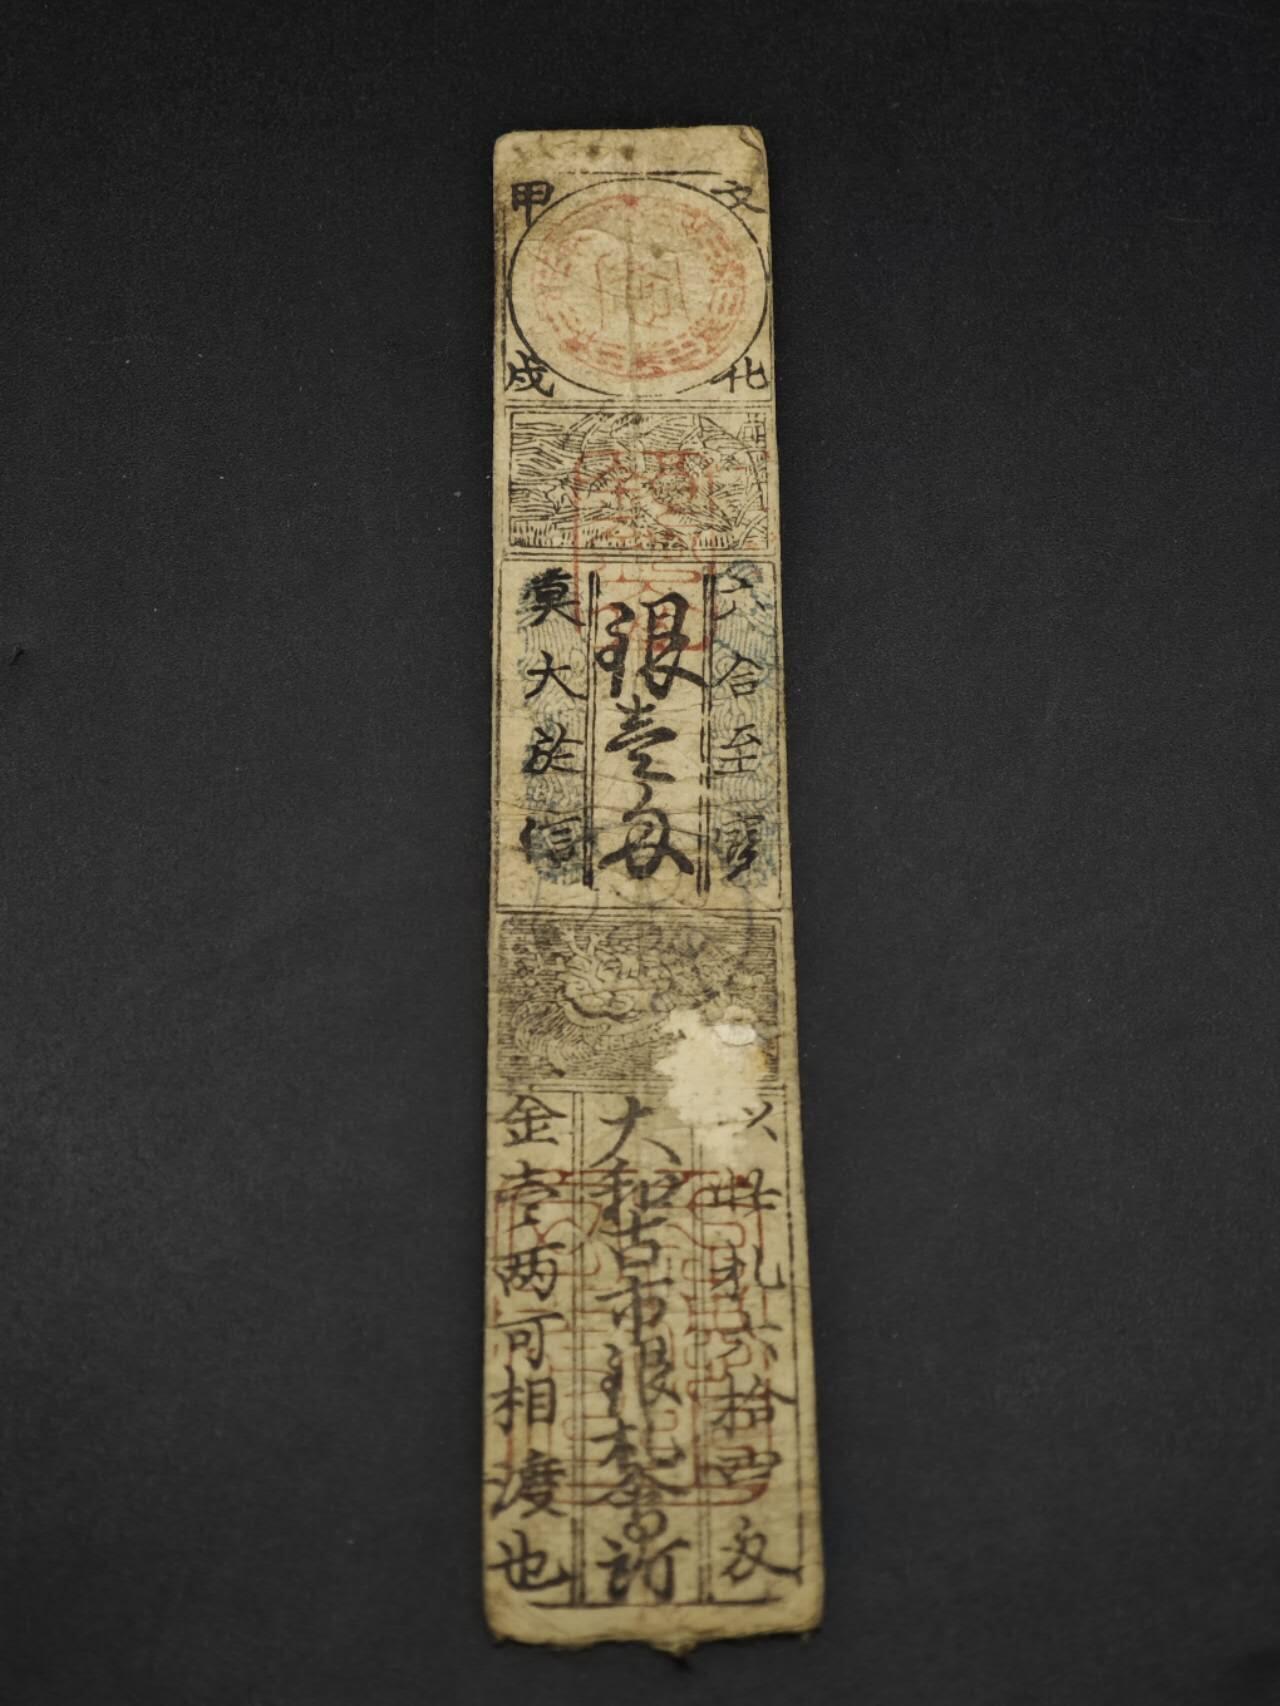 文化
甲戌
六合至寶
銀壹匁
莫大於信
以此札六拾四匁
大和古市銀札會所
金壹両可相渡也